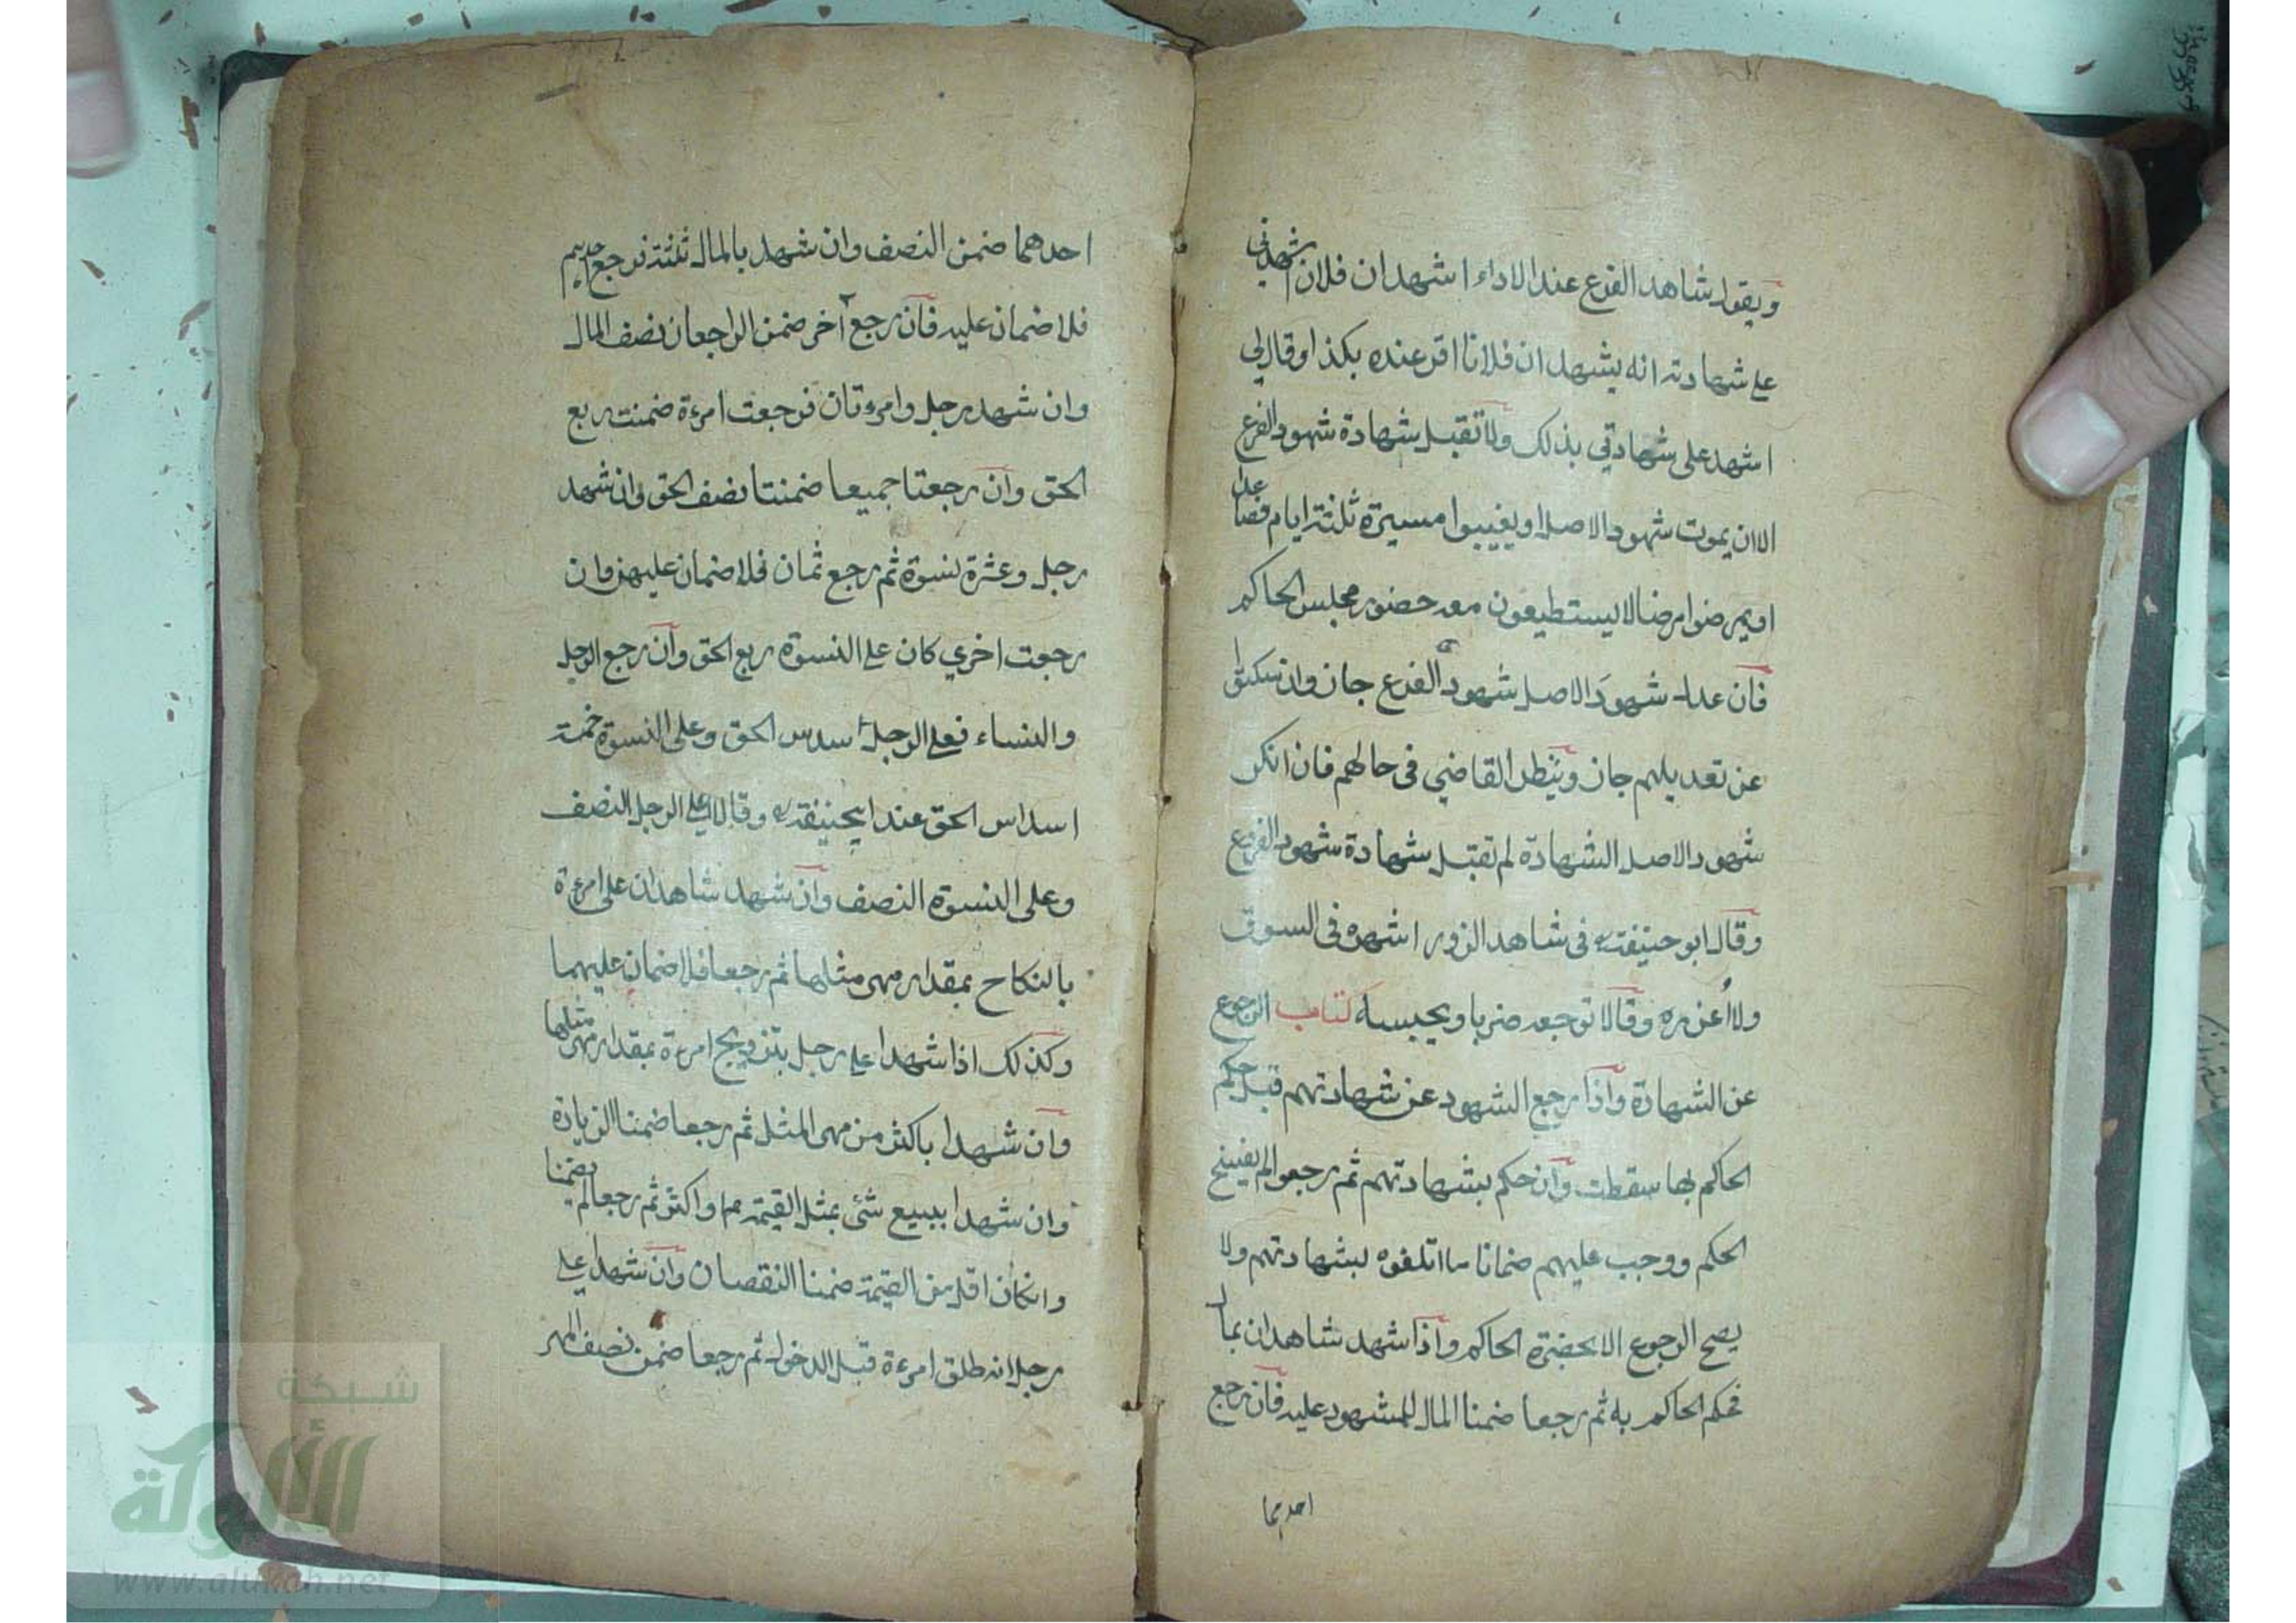 ويقول شاهد الفرع عند الاداء اشهد ان فلان اشهدني
على شهادته انه يشهد ان فلانا اقر عنده بكذا وقال لي
اشهد على شهادتي بذلك ولا تقبل شهادة شهود الفرع
الا ان يموت شهود الاصل او يغيبوا مسيرة ثلثة ايام فصاعدا
او يمرضوا مرضا لا يستطيعون معه حضور مجلس الحاكم
فان عدل شهود الاصل شهود الفرع جاز وان سكتوا
عن تعديلهم جاز وينظر القاضي في حالهم فان انكر
شهود الاصل الشهادة لم تقبل شهادة شهود الفرع
وقال ابو حنيفة في شاهد الزور اشهره في السوق
ولا اعزره وقالا توجعه ضربا ويحبسه كتاب الرجوع
عن الشهادة واذا رجع الشهود عن شهادتهم قبل حكم
الحاكم بها سقطت وان حكم بشهادتهم ثم رجعوا لم يفسخ
الحكم ووجب عليهم ضمان ما اتلفوه بشهادتهم ولا
يصح الرجوع الا بحضرة الحاكم واذا شهد شاهدان بمال
فحكم الحاكم به ثم رجعا ضمنا المال للمشهود عليه فان رجع
احدهما
احدهما ضمن النصف وان شهد بالمال ثلثة فرجع احدهم
فلا ضمان عليه فان رجع آخر ضمن الراجعان نصف المال
وان شهد رجل وامرءتان فرجعت امرءة ضمنت ربع
الحق وان رجعتا جميعا ضمنتا نصف الحق وان شهد
رجل وعشرة نسوة ثم رجع ثمان فلا ضمان عليهن وان
رجعت اخري كان على النسوة ربع الحق وان رجع الرجل
والنساء فعلى الرجل سدس الحق وعلى النسوة خمسة
اسداس الحق عند ابيحنيفة وقالا على الرجل النصف
وعلى النسوة النصف وان شهد شاهدان على امرءة
بالنكاح بمقدار مهر مثلها ثم رجعا فلا ضمان عليهما
وكذلك اذا شهدا على رجل بتزويج امرءة بمقدار مهر مثلها
وان شهدا باكثر من مهر المثل ثم رجعا ضمنا الزيادة
وان شهدا ببيع شئ بمثل القيمة او اكثر ثم رجعا لم يضمنا
وانكان اقل من القيمة ضمنا النقصان وان شهدا على
رجل انه طلق امرءة قبل الدخول ثم رجعا ضمن نصف المهر
شبكة
الألوكة
www.alukah.net